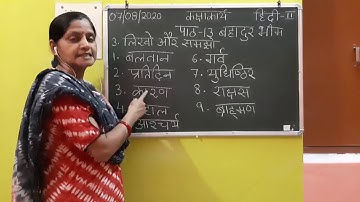 07/08/2020 कक्षाकार्य हिंदी-III
पाठ-13 बहादुर भीम
3. लिखो और समझो
1. बलवान 6. गर्व
2. प्रतिदिन 7. युधिष्ठिर
3. कारण 8. राक्षस
4. 9. ब्राह्मण
आश्चर्य